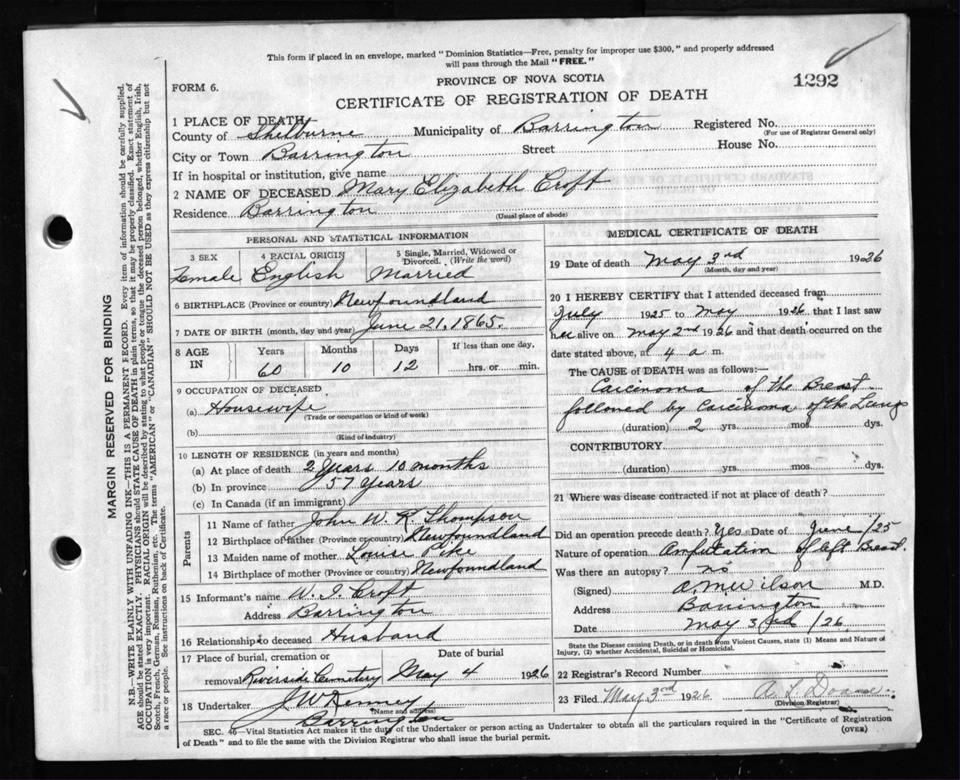 This form if placed in an envelope, marked "Dominion Statistics—Free, penalty for improper use $300," and properly addressed
will pass through the Mail "FREE."
FORM 6.
PROVINCE OF NOVA SCOTIA
1292
CERTIFICATE OF REGISTRATION OF DEATH
1 PLACE OF DEATH
County of Shelburne Municipality of Barrington Registered No.
(For use of Registrar General only)
City or Town Barrington Street House No.
If in hospital or institution, give name
2 NAME OF DECEASED Mary Elizabeth Croft
Residence Barrington
(Usual place of abode)
PERSONAL AND STATISTICAL INFORMATION
3 SEX 4 RACIAL ORIGIN 5 Single, Married, Widowed or Divorced. (Write the word)
Female English Married
6 BIRTHPLACE (Province or country) Newfoundland
7 DATE OF BIRTH (month, day and year) June 21, 1865.
8 AGE IN Years Months Days If less than one day,
60 10 12 hrs. or min.
9 OCCUPATION OF DECEASED
(a) Housewife
(Trade or occupation or kind of work)
(b)
(Kind of industry)
10 LENGTH OF RESIDENCE (in years and months)
(a) At place of death 2 years 10 months
(b) In province 57 years
(c) In Canada (if an immigrant)
Parents
11 Name of father John W. R. Thompson
12 Birthplace of father (Province or country) Newfoundland
13 Maiden name of mother Louise Pike
14 Birthplace of mother (Province or country) Newfoundland
15 Informant's name W. I. Croft
Address Barrington
16 Relationship to deceased Husband
17 Place of burial, cremation or removal Date of burial
Riverside Cemetery May 4 1926
18 Undertaker J W Kenney
(Name and address)
Barrington
MEDICAL CERTIFICATE OF DEATH
19 Date of death May 3rd 1926
(Month, day and year)
20 I HEREBY CERTIFY that I attended deceased from
July 1925 to May 1926 that I last saw
her alive on May 2nd 1926 and that death occurred on
date stated above, at 4 a m.
The CAUSE OF DEATH was as follows:—
Carcinoma of the Breast
followed by Carcinoma of the Lungs
(duration) 2 yrs. mos. dys.
CONTRIBUTORY
(duration) yrs. mos. dys.
21 Where was disease contracted if not at place of death?
Did an operation precede death? Yes Date of June /25
Nature of operation Amputation of left Breast.
Was there an autopsy? no
(Signed) A M Wilson M.D.
Address Barrington
Date May 3rd /26.
State the Disease causing Death, or in death from Violent Causes, state (1) Means and Nature of
Injury, (2) whether Accidental, Suicidal or Homicidal.
22 Registrar's Record Number
23 Filed May 3rd 1926 A. L. Doane
(Division Registrar)
SEC. 46—Vital Statistics Act makes it the duty of the Undertaker or person acting as Undertaker to obtain all the particulars required in the "Certificate of Registration
of Death" and to file the same with the Division Registrar who shall issue the burial permit.
(OVER)
MARGIN RESERVED FOR BINDING
N.B.—WRITE PLAINLY WITH UNFADING INK—THIS IS A PERMANENT RECORD. Every item of information should be carefully supplied.
AGE should be stated EXACTLY. PHYSICIANS should STATE CAUSE OF DEATH in plain terms, so that it may be properly classified. Exact statement of
OCCUPATION is very important. RACIAL ORIGIN will be described by stating to what people or tongue the deceased person belonged, whether English, Irish,
Scotch, French, German, Russian, Ruthenian, etc. The terms "AMERICAN" or "CANADIAN" SHOULD NOT BE USED as they express citizenship but not
a race or people. See instructions on back of Certificate.